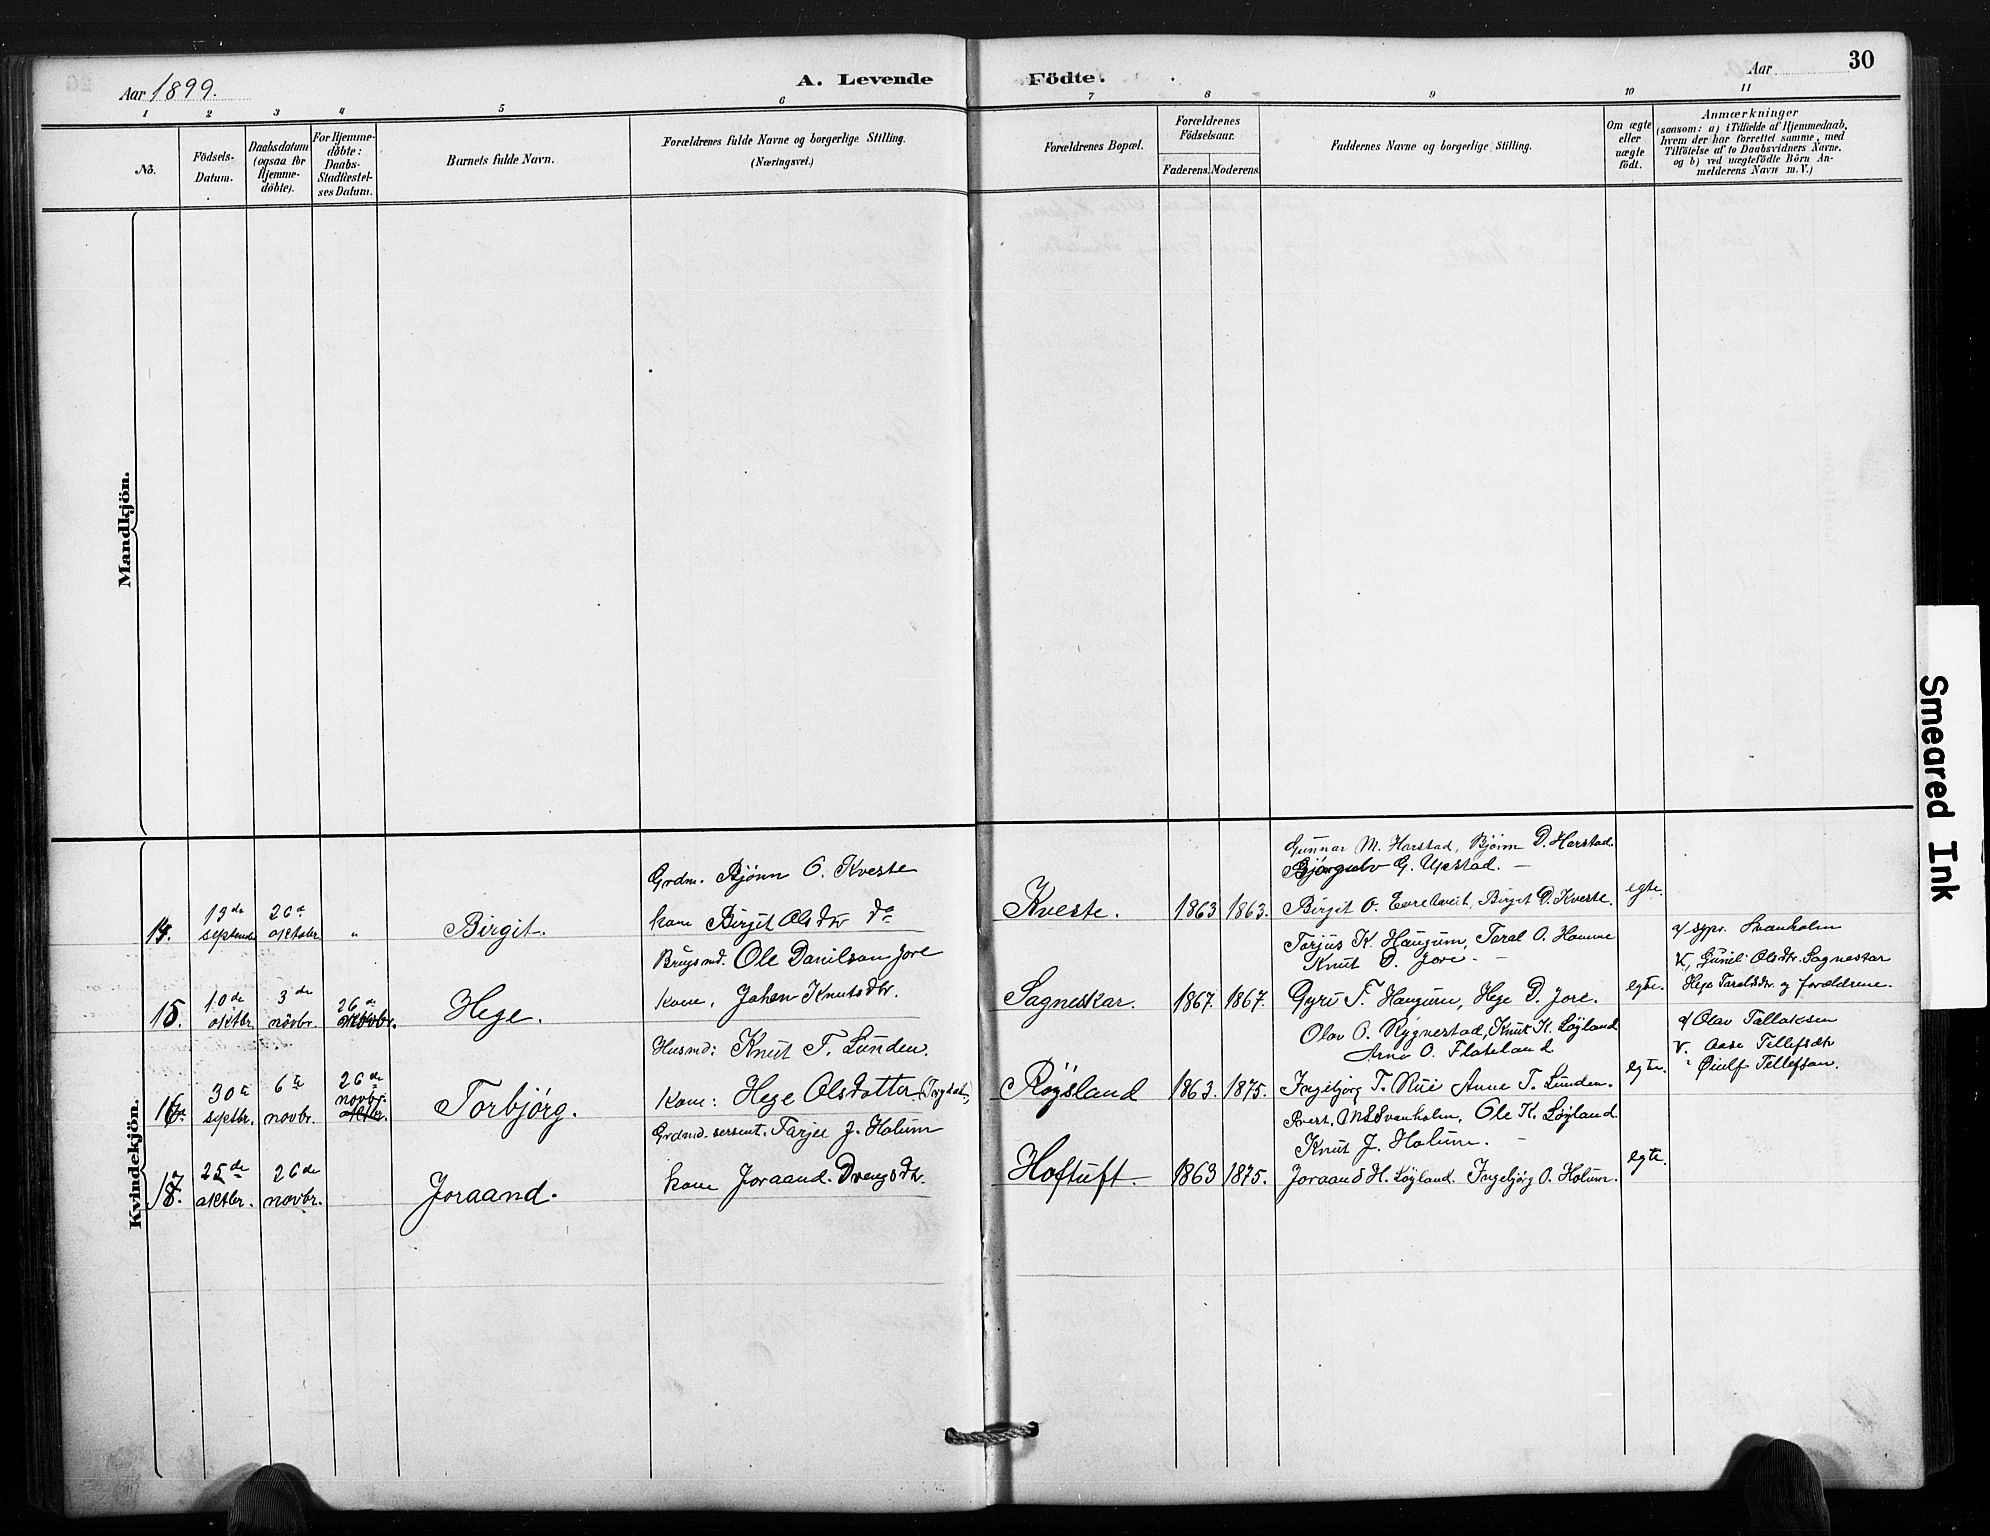 Aar 1899.
A. Levende
Födte.
Aar
30
1
2
3
4
5
6
7
8
9
10
11
No.
Födsels-
Datum.
Daabsdatum
(ogsaa for
Hjemme-
döbte).
For Hjemme-
döbte:
Daabs-
Stadfæstel-
ses Datum.
Barnets fulde Navn.
Forældrenes fulde Navne og borgerlige Stilling.
(Næringsvei.)
Forældrenes Bopæl.
Forældrenes
Födselsaar.
Faderens.
Moderens.
Faddernes Navne og borgerlige Stilling.
Om ægte
eller
uægte
födt.
Anmærkninger
(saasom: a) i Tilfælde af Hjemmedaab,
hvem der har forrettet samme, med
Tilföielse af to Daabsvidners Navne,
og b) ved uægtefödte Börn An-
melderens Navn m. V.)
Mandkjön.
Kvindekjön.
14.
13de
septembr
26de
oktober
"
Birgit.
Grdm. Bjönn O. Kveste
kone Birgit Olsdtr do
Kveste.
1863
1863.
Gunnar M. Harstad, Bjönn D. Harstad.
Björgulv G. Upstad. —
Birgit O. , Birgit D. Kveste.
egte.
15.
10de
oktbr.
3de
novbr.
26de
novbr.
Hege.
Brugsmd. Ole Danilson Jore
kone, Johen Knutsdtr.
Sagneskar.
1867.
1867.
Torjus K. Haugum, Taral O. Homme
Knut D. Jore. —
Gyro T. Haugum, Hege D. Jore.
egte.
af sgpr. Svanholm
V. Gunil Olsdtr. Sagneskar
Hege Taraldsdtr. og forældrene.
16.
30te
septbr.
6te
novbr.
26de
novbr.
oktbr.
Torbjørg.
Husmd: Knut T. Lunden.
kone: Hege Olsdatter
Røysland
1863.
1875.
Olav O. Rygnestad, Knut K. Løyland
Arne O. Flateland
Ingebjørg T. Rui Anne T. Lunden.
egte.
af Olav Tallaksen
V. Aase Tellefsdtr
" Øiulf Tellefsen.
17.
25de
oktbr.
26de
novbr.
Joraand.
Grdmd. sersent. Tarjei J. Holum
kone Joraand Drengsdtr.
Hoftuft
1863
1875.
Prest, M. Svanholm, Ole K. Løyland
Knut J. Holum. —
Joraand H. Løyland. Ingebjørg O. Holum.
egte.
Smeared Ink